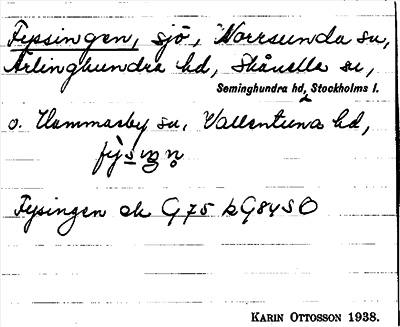 Fyssingen, sjö, Norrsunda sn,
Ärlinghundra hd, Skånella sn,
Seminghundra hd, Stockholms l.
o. Hammarby sn, Vallentuna hd,
Fysingen ek G75 bG84SO
KARIN OTTOSSON 1938.